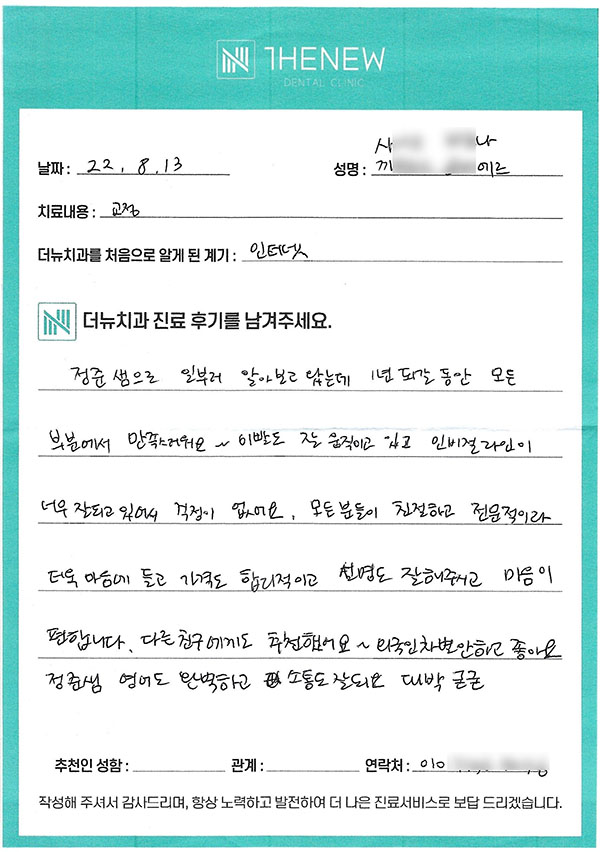 THENEW
DENTAL CLINIC
사 나
날짜 : 22. 8. 13 성명 : 끼 에르
치료내용 : 교정
더뉴치과를 처음으로 알게 된 계기 : 인터넷
더뉴치과 진료 후기를 남겨주세요.
정준 샘으로 일부러 알아보고 왔는데 1년 되갈 동안 모든
부분에서 만족스러워요~ 이빨도 잘 움직이고 있고 인비절라인이
너무 잘되고 있어서 걱정이 없어요. 모든분들이 친절하고 전문적이라
더욱 마음에 들고 가격도 합리적이고 설명도 잘해주시고 마음이
편합니다. 다른친구에게도 추천했어요~ 외국인차별안하고 좋아요
정준샘 영어도 완벽하고 소통도 잘되요 대박 굳굳
추천인 성함 : 관계 : 연락처 : 010
작성해 주셔서 감사드리며, 항상 노력하고 발전하여 더 나은 진료서비스로 보답 드리겠습니다.